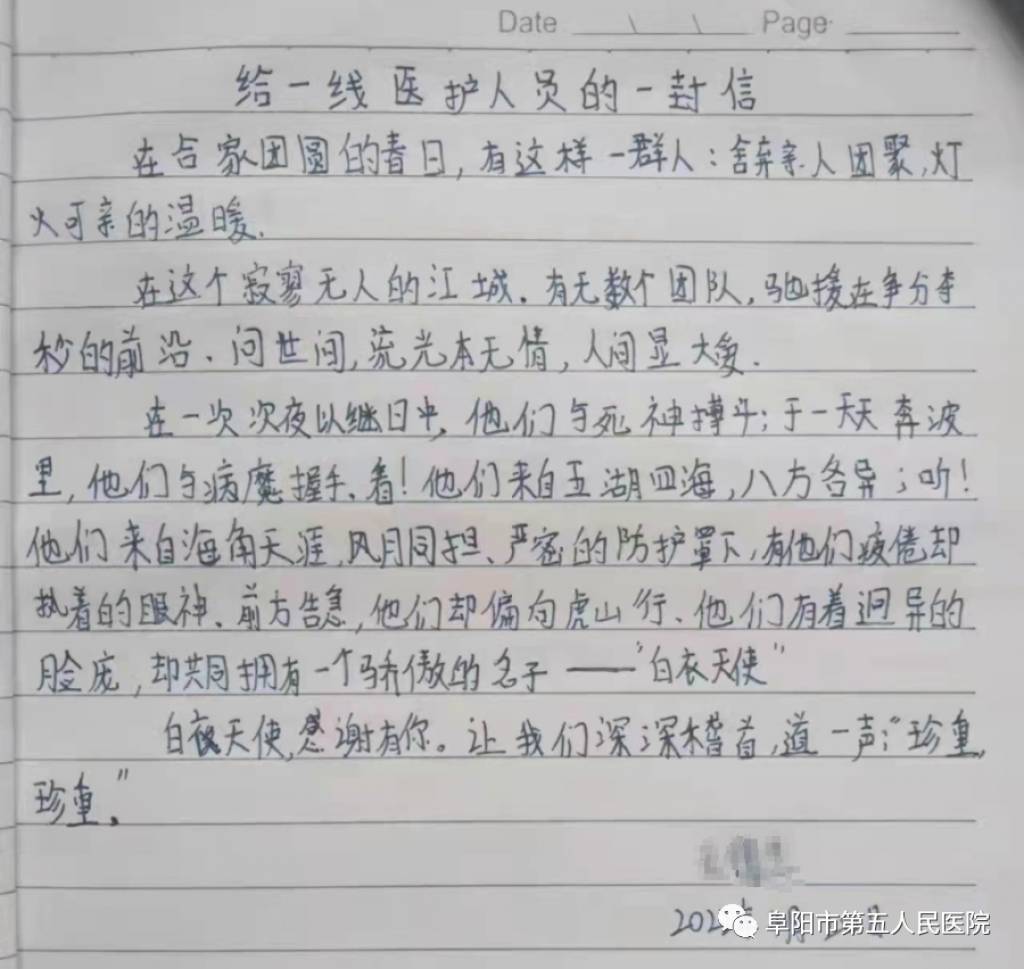 Date \ \ Page
给一线医护人员的一封信
在合家团圆的春日,有这样一群人:舍弃亲人团聚,灯
火可亲的温暖.
在这个寂寥无人的江城.有无数个团队,驰援在争分夺
秒的前沿、问世间,流光本无情,人间显大爱.
在一次次夜以继日中,他们与死神搏斗;于一天天奔波
里,他们与病魔握手、看!他们来自五湖四海,八方各异;听!
他们来自海角天涯,风月同担、严密的防护罩下,有他们疲倦却
执着的眼神、前方告急,他们却偏向虎山行、他们有着迥异的
脸庞,却共同拥有一个骄傲的名字——"白衣天使"
白衣天使,感谢有你。让我们深深稽首,道一声:"珍重,
珍重。"
2022年 月 日
阜阳市第五人民医院